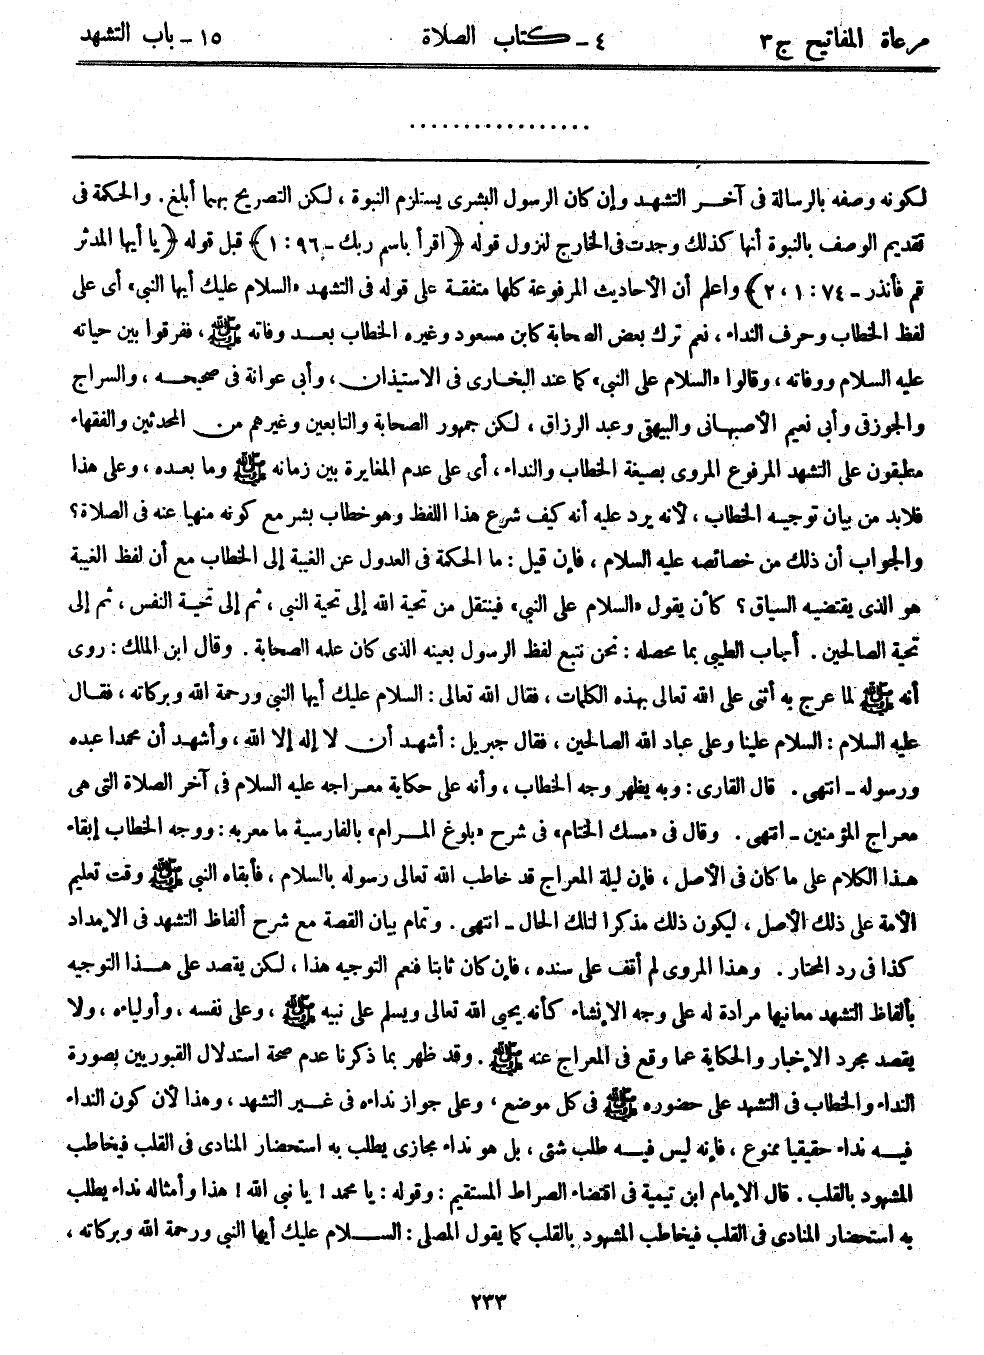 مرعاة المفاتيح ج٣
٤ ـ كتاب الصلاة
١٥ ـ باب التشهد
.................
لكونه وصفه بالرسالة فى آخر التشهد وإن كان الرسول البشرى يستلزم النبوة ، لكن التصريح بهما أبلغ. والحكمة فى
تقديم الوصف بالنبوة أنها كذلك وجدت فى الخارج لنزول قوله ﴿اقرأ باسم ربك ـ ٩٦ : ١﴾ قبل قوله ﴿يا أيها المدثر
قم فأنذر ـ ٧٤ : ١ ، ٢﴾ واعلم أن الأحاديث المرفوعة كلها متفقة على قوله فى التشهد «السلام عليك أيها النبى» أى على
لفظ الخطاب وحرف النداء ، نعم ترك بعض الصحابة كابن مسعود وغيره الخطاب بعد وفاته ﷺ ، ففرقوا بين حياته
عليه السلام ووفاته ، وقالوا «السلام على النبى» كما عند البخارى فى الاستيذان ، وأبى عوانة فى صحيحه ، والسراج
والجوزقى وأبى نعيم الأصبهانى والبيهقى وعبد الرزاق ، لكن جمهور الصحابة والتابعين وغيرهم من المحدثين والفقهاء
متطبقون على التشهد المرفوع المروى بصيغة الخطاب والنداء ، أى على عدم المغايرة بين زمانه ﷺ وما بعده ، وعلى هذا
فلابد من بيان توجيه الخطاب ، لأنه يرد عليه أنه كيف شرع هذا اللفظ وهو خطاب بشر مع كونه منهيا عنه فى الصلاة؟
والجواب أن ذلك من خصائصه عليه السلام ، فإن قيل : ما الحكمة فى العدول عن الغيبة إلى الخطاب مع أن لفظ الغيبة
هو الذى يقتضيه السياق ؟ كأن يقول «السلام على النبى» فينتقل من تحية الله إلى تحية النبى ، ثم إلى تحية النفس ، ثم إلى
تحية الصالحين . أجاب الطيبى بما محصله : نحن نتبع لفظ الرسول بعينه الذى كان علمه الصحابة . وقال ابن الملك : روى
أنه ﷺ لما عرج به أثنى على الله تعالى بهذه الكلمات ، فقال الله تعالى : السلام عليك أيها النبى ورحمة الله وبركاته ، فقال
عليه السلام : السلام علينا وعلى عباد الله الصالحين ، فقال جبريل : أشهد أن لا إله إلا الله ، وأشهد أن محمدا عبده
ورسوله ـ انتهى . قال القارى : وبه يظهر وجه الخطاب ، وأنه على حكاية معراجه عليه السلام فى آخر الصلاة التى هى
معراج المؤمنين ـ انتهى . وقال فى «مسك الختام» فى شرح «بلوغ المرام» بالفارسية ما معربه : ووجه الخطاب إبقاء
هذا الكلام على ما كان فى الأصل ، فإن ليلة المعراج قد خاطب الله تعالى رسوله بالسلام ، فأبقاه النبى ﷺ وقت تعليم
الأمة على ذلك الأصل ، ليكون ذلك مذكرا لتلك الحال ـ انتهى . وتمام بيان القصة مع شرح ألفاظ التشهد فى الإمداد
كذا فى رد المحتار . وهذا المروى لم أقف على سنده ، فإن كان ثابتا فنعم التوجيه هذا ، لكن يقصد على هذا التوجيه
بألفاظ التشهد معانيها مرادة له على وجه الإنشاء كأنه يحيى الله تعالى ويسلم على نبيه ﷺ ، وعلى نفسه ، وأولياءه ، ولا
يقصد مجرد الإخبار والحكاية عما وقع فى المعراج عنه ﷺ . وقد ظهر بما ذكرنا عدم صحة استدلال القبوريين بصورة
النداء والخطاب فى التشهد على حضوره ﷺ فى كل موضع ، وعلى جواز نداءه فى غير التشهد ، وهذا لأن كون النداء
فيه نداء حقيقيا ممنوع ، فإنه ليس فيه طلب شئ ، بل هو نداء مجازى يطلب به استحضار المنادى فى القلب فيخاطب
المشهود بالقلب . قال الإمام ابن تيمية فى اقتضاء الصراط المستقيم : وقوله : يا محمد ! يا نبى الله ! هذا وأمثاله نداء يطلب
به استحضار المنادى فى القلب فيخاطب المشهود بالقلب كما يقول المصلى : السلام عليك أيها النبى ورحمة الله وبركاته ،
٢٣٣